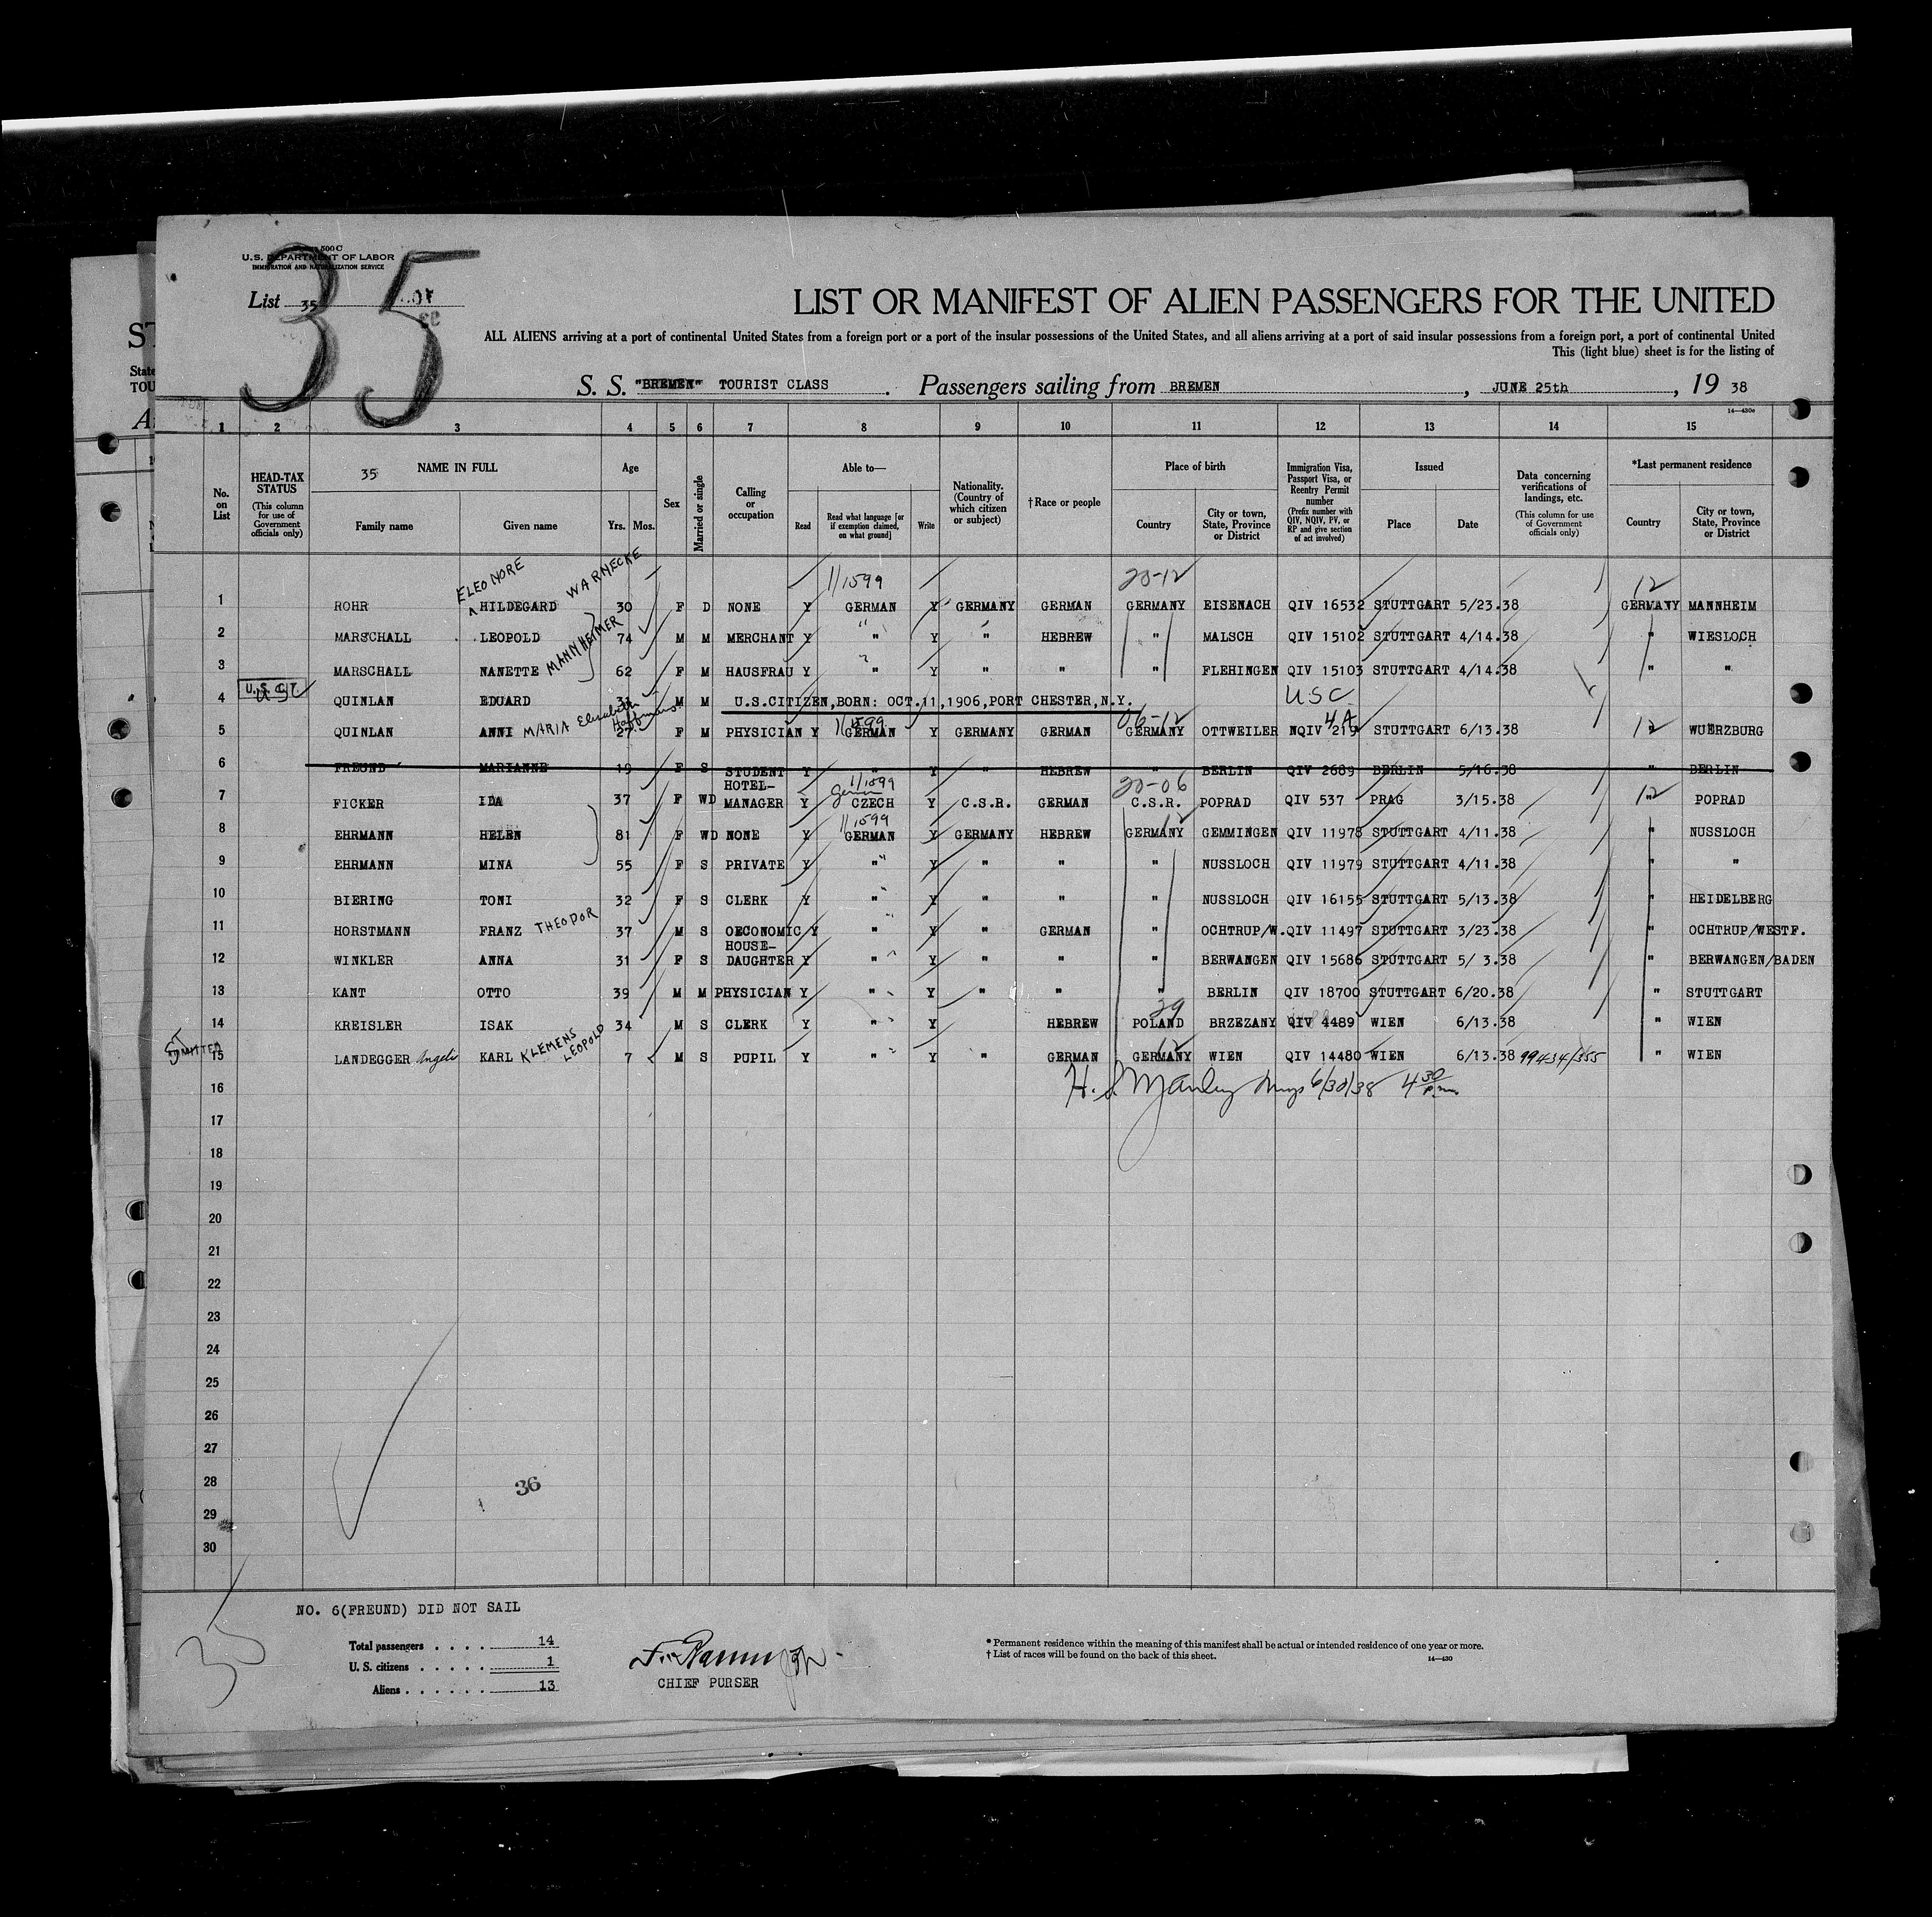 Form 500 C
U.S. DEPARTMENT OF LABOR
IMMIGRATION AND NATURALIZATION SERVICE
35
List 35
LIST OR MANIFEST OF ALIEN PASSENGERS FOR THE UNITED
ALL ALIENS arriving at a port of continental United States from a foreign port or a port of the insular possessions of the United States, and all aliens arriving at a port of said insular possessions from a foreign port, a port of continental United
This (light blue) sheet is for the listing of
S. S. "BREMEN" TOURIST CLASS. Passengers sailing from BREMEN, JUNE 25th, 19 38
14—430e
1 2 3 4 5 6 7 8 9 10 11 12 13 14 15
No. on List
HEAD-TAX STATUS (This column for use of Government officials only)
35 NAME IN FULL
Family name Given name
Age
Yrs. Mos.
Sex
Married or single
Calling or occupation
Able to—
Read Read what language [or if exemption claimed, on what ground] Write
Nationality. (Country of which citizen or subject)
†Race or people
Place of birth
Country City or town, State, Province or District
Immigration Visa, Passport Visa, or Reentry Permit number (Prefix number with QIV, NQIV, PV, or RP and give section of act involved)
Issued
Place Date
Data concerning verifications of landings, etc. (This column for use of Government officials only)
*Last permanent residence
Country City or town, State, Province or District
ELEONORE WARNECKE 11/1599 20-12 12
1 ROHR HILDEGARD 30 F D NONE Y GERMAN Y GERMANY GERMAN GERMANY EISENACH QIV 16532 STUTTGART 5/23.38 GERMANY MANNHEIM
2 MARSCHALL LEOPOLD 74 M M MERCHANT Y " Y " HEBREW " MALSCH QIV 15102 STUTTGART 4/14.38 " WIESLOCH
3 MARSCHALL NANETTE MANNHEIMER 62 F M HAUSFRAU Y " Y " " " FLEHINGEN QIV 15103 STUTTGART 4/14.38 " "
U.S.C.
4 QUINLAN EDUARD 31 M M U.S.CITIZEN,BORN: OCT.11,1906,PORT CHESTER,N.Y. USC
11/1599 06-12 4A
5 QUINLAN ANNI MARIA Elisabeth Hoffmann 27 F M PHYSICIAN Y GERMAN Y GERMANY GERMAN GERMANY OTTWEILER NQIV 219 STUTTGART 6/13.38 12 " WUERZBURG
6 FREUND MARIANNE 19 F S STUDENT Y " Y " HEBREW " BERLIN QIV 2689 BERLIN 5/16.38 " BERLIN
11/1599 20-06
7 FICKER IDA 37 F WD HOTEL-MANAGER Y German CZECH Y C.S.R. GERMAN C.S.R. POPRAD QIV 537 PRAG 3/15.38 12 " POPRAD
11/1599 12
8 EHRMANN HELEN 81 F WD NONE Y GERMAN Y GERMANY HEBREW GERMANY GEMMINGEN QIV 11978 STUTTGART 4/11.38 " NUSSLOCH
9 EHRMANN MINA 55 F S PRIVATE Y " Y " " " NUSSLOCH QIV 11979 STUTTGART 4/11.38 " "
10 BIERING TONI 32 F S CLERK Y " Y " " " NUSSLOCH QIV 16155 STUTTGART 5/13.38 " HEIDELBERG
11 HORSTMANN FRANZ THEODOR 37 M S OECONOMIC Y " Y " GERMAN " OCHTRUP/W. QIV 11497 STUTTGART 3/23.38 " OCHTRUP/WESTF.
12 WINKLER ANNA 31 F S HOUSE-DAUGHTER Y " Y " " " BERWANGEN QIV 15686 STUTTGART 5/ 3.38 " BERWANGEN/BADEN
13 KANT OTTO 39 M M PHYSICIAN Y " Y " " " BERLIN QIV 18700 STUTTGART 6/20.38 " STUTTGART
29
14 KREISLER ISAK 34 M S CLERK Y " Y HEBREW POLAND BRZEZANY QIV 4489 WIEN 6/13.38 " WIEN
ADMITTED 12
15 LANDEGGER KARL KLEMENS LEOPOLD 7 M S PUPIL Y " Y " GERMAN GERMANY WIEN QIV 14480 WIEN 6/13.38 99434/355 " WIEN
16 H. S. Manley 6/30/38 4 30 p.m.
17
18
19
20
21
22
23
24
25
26
27
28
36
29
30
NO. 6(FREUND) DID NOT SAIL
35
Total passengers . . . . 14
U. S. citizens . . . . . . 1
Aliens . . . . . . . 13
CHIEF PURSER
* Permanent residence within the meaning of this manifest shall be actual or intended residence of one year or more.
† List of races will be found on the back of this sheet.
14—430